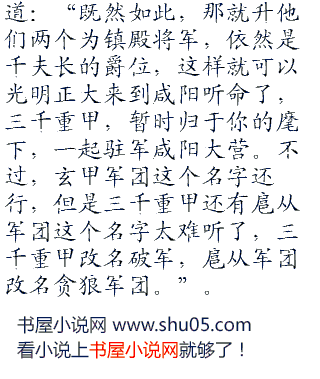 道：“既然如此，那就升他
们两个为镇殿将军，依然是
千夫长的爵位，这样就可以
光明正大来到咸阳听命了，
三千重甲，暂时归于你的麾
下，一起驻军咸阳大营。不
过，玄甲军团这个名字还
行，但是三千重甲还有扈从
军团这个名字太难听了，三
千重甲改名破军，扈从军团
改名贪狼军团。”。
书屋小说网 www.shu05.com
看小说上书屋小说网就够了！